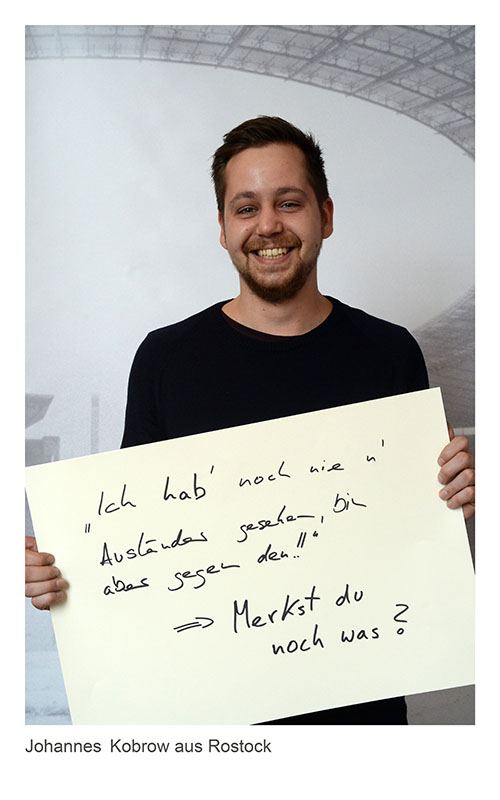 „Ich hab' noch nie n'
Ausländer gesehen, bin
aber gegen den!!"
=> Merkst du
noch was?
Johannes Kobrow aus Rostock